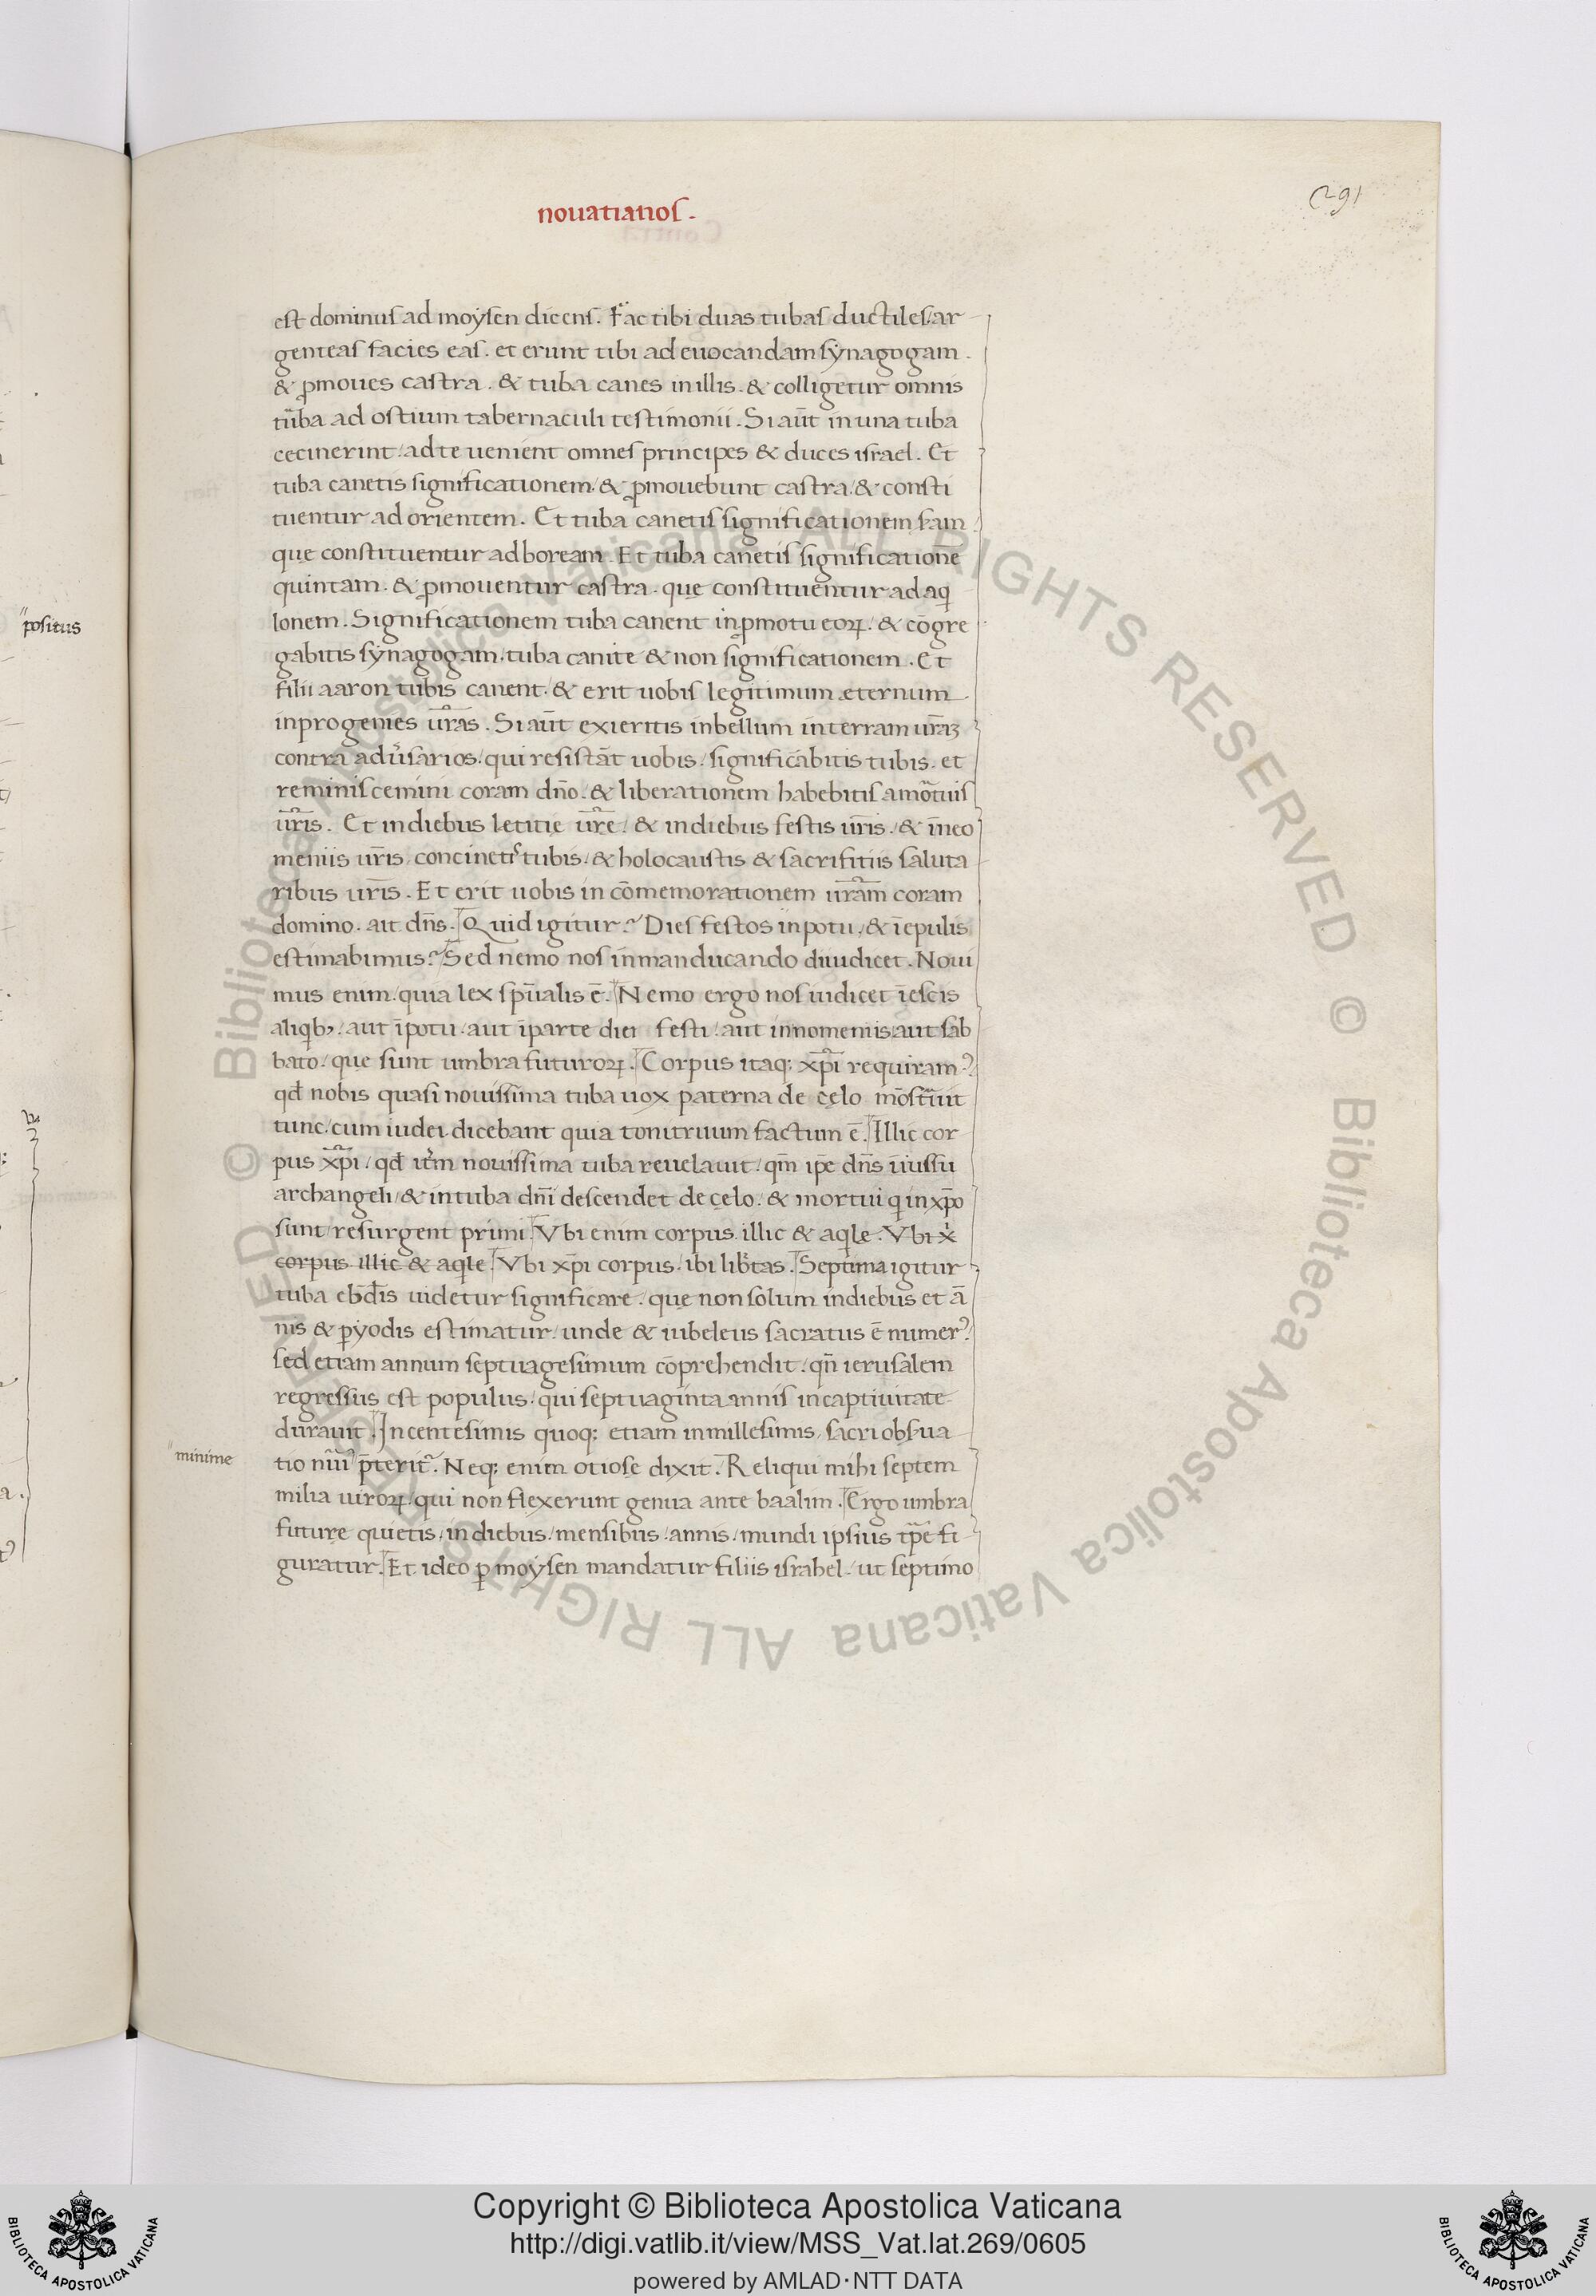 nouatianos.
291
est dominus ad moysen dicens. Fac tibi duas tubas ductiles ar
genteas facies eas. et erunt tibi ad euocandam synagogam.
& ꝓmoues castra. & tuba canes in illis. & colligetur omnis
tuba ad ostium tabernaculi testimonii. Si aūt in una tuba
cecinerint/ ad te uenient omnes principes & duces israel. Et
tuba canetis significationem/ & ꝓmouebunt castra/ & consti
tuentur ad orientem. Et tuba canetis significationem
que constituentur ad boream. Et tuba canetis significationē
quintam. & ꝓmouentur castra. quę constituentur ad aqi
lonem. Significationem tuba canent in ꝓmotu eoꝝ. & cōgre
gabitis synagogam. tuba canite & non significationem. Et
filii aaron tubis canent. & erit uobis legitimum eternum
in progenies ur̄as. Si aūt exieritis in bellum in terram ur̄aꝫ
contra adu'sarios/ qui resistāt uobis/ significabitis tubis. et
reminiscemini coram dn̄o. & liberationem habebitis
ur̄is. Et in diebus letitię ur̄ę/ & in diebus festis ur̄is/ & ī neo
meniis ur̄is concinet tubis/ & holocaustis & sacrifitiis saluta
ribus ur̄is. Et erit uobis in cōmemorationem ur̄am coram
domino. ait dn̄s. Quid igitur? Dies festos in potu/ & ī epulis
estimabimus? Sed nemo nos in manducando diiudicet. Noui
mus enim/ quia lex sp̄ualis ē. Nemo ergo nos iudicet ī escis
aliqbꝫ/ aut ī potu/ aut ī parte diei festi/ aut in nomeniis aut sab
bato/ quę sunt umbra futuroꝝ. Corpus itaq; xp̄i requiram?
qđ nobis quasi nouissima tuba uox paterna de cęlo mōstūit
tunc/ cum iudei dicebant quia tonitruum factum ē. Illic cor
pus xp̄i/ qđ itm nouissima tuba reuelauit/ qm̄ ip̄e dn̄s ī iussu
archangeli/ & in tuba dn̄i descendet de cęlo. & mortui qi in xp̄o
sunt/ resurgent primi. Vbi enim corpus illic & aqile. Vbi x
corpus illic & aqile. Vbi xp̄i corpus/ ibi libtas. Septima igitur
tuba ebd̄is uidetur significare. quę non solum in diebus et ā
nis & ꝑyodis estimatur/ unde & iubeleus sacratus ē numer'.
sed etiam annum septuagesimum cōprehendit/ qn̄ ierusalem
regressus est populus/ qui septuaginta annis in captiuitate
durauit. In centesimis quoq; etiam in millesimis/ sacri obsua
tio p̄terit. Neq; enim otiose dixit. Reliqui mihi septem
milia uiroꝝ/ qui non flexerunt genua ante baalim. Ergo umbra
futurę quietis/ in diebus/ mensibus/ annis/ mundi ipsius tp̄e fi
guratur. Et ideo ꝑ moysen mandatur filiis israhel/ ut septimo
positus
minime
© Biblioteca Apostolica Vaticana ALL RIGHTS RESERVED © Biblioteca Apostolica Vaticana ALL RIGHTS RESERVED
Copyright © Biblioteca Apostolica Vaticana
http://digi.vatlib.it/view/MSS_Vat.lat.269/0605
powered by AMLAD·NTT DATA
BIBLIOTECA APOSTOLICA VATICANA
BIBLIOTECA APOSTOLICA VATICANA